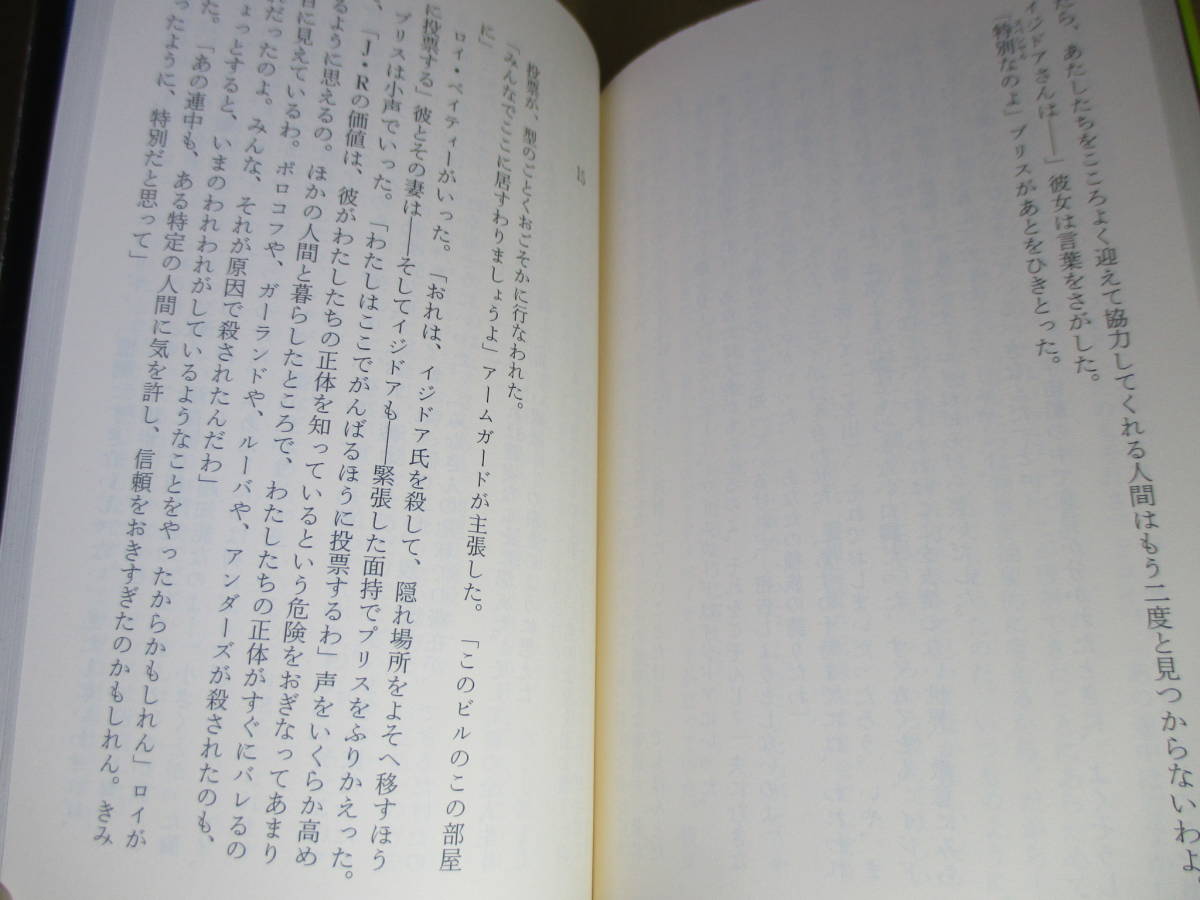 たら、あたしたちをこころよく迎えて協力してくれる人間はもう二度と見つからないわよ。
イジドアさんは――」彼女は言葉をさがした。
「特別なのよ」プリスがあとをひきとった。
15
投票が、型のごとくおごそかに行なわれた。
「みんなでここに居すわりましょうよ」アームガードが主張した。「このビルのこの部屋
に」
ロイ・ベイティーがいった。「おれは、イジドア氏を殺して、隠れ場所をよそへ移すほう
に投票する」彼とその妻は――そしてイジドアも――緊張した面持でプリスをふりかえった。
プリスは小声でいった。「わたしはここでがんばるほうに投票するわ」声をいくらか高め
、「J・Rの価値は、彼がわたしたちの正体を知っているという危険をおぎなってあまり
るように思えるの。ほかの人間と暮らしたところで、わたしたちの正体がすぐにバレるの
目に見えているわ。ポロコフや、ガーランドや、ルーバや、アンダーズが殺されたのも、
れだったのよ。みんな、それが原因で殺されたんだわ」
ょっとすると、いまのわれわれがしているようなことをやったからかもしれん」ロイが
た。「あの連中も、ある特定の人間に気を許し、信頼をおきすぎたのかもしれん。きみ
ったように、特別だと思って」